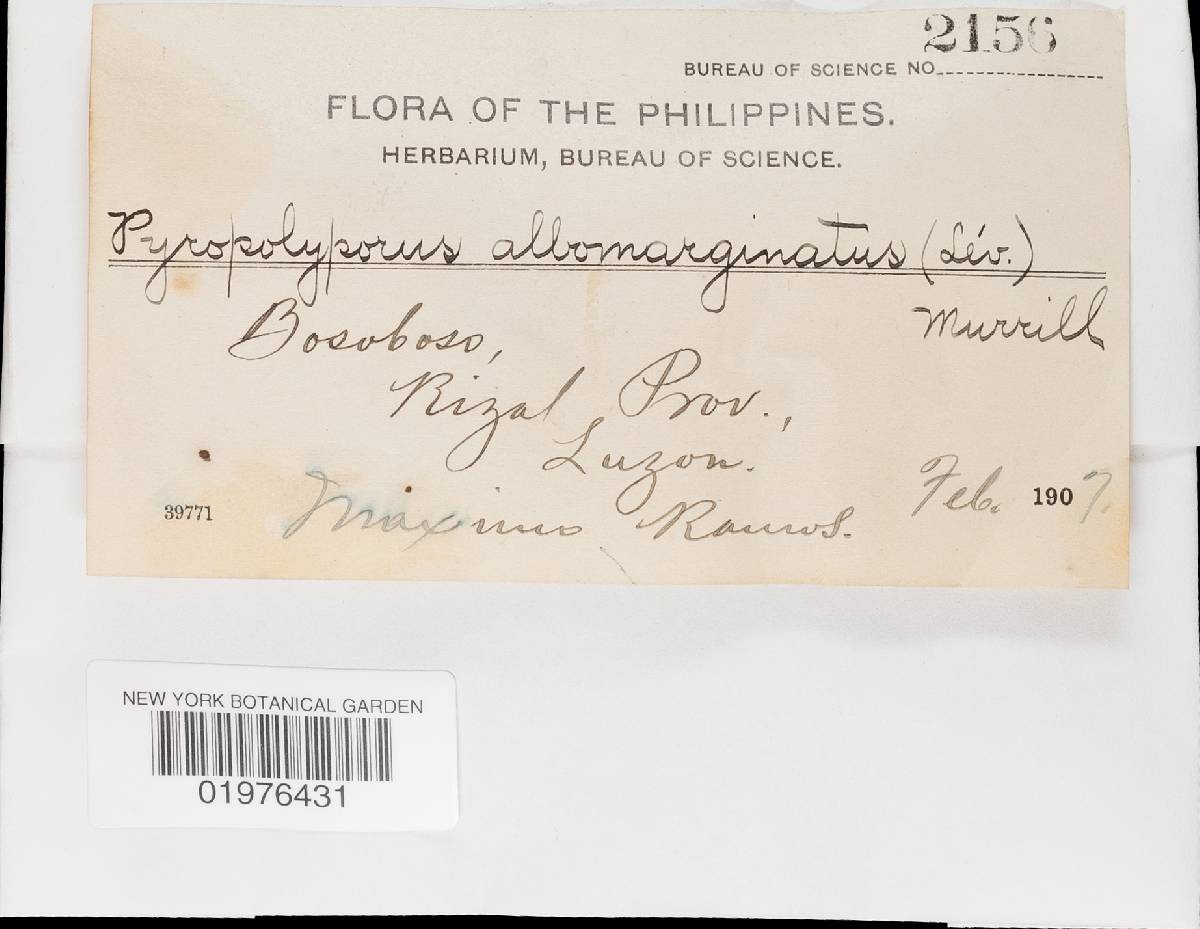 2156
BUREAU OF SCIENCE NO.
FLORA OF THE PHILIPPINES.
HERBARIUM, BUREAU OF SCIENCE.
Pyropolyporus albomarginatus (Lév.)
Murrill
Bosoboso,
Rizal Prov.,
Luzon.
Feb. 1907.
39771
Maximo Ramos.
NEW YORK BOTANICAL GARDEN
01976431